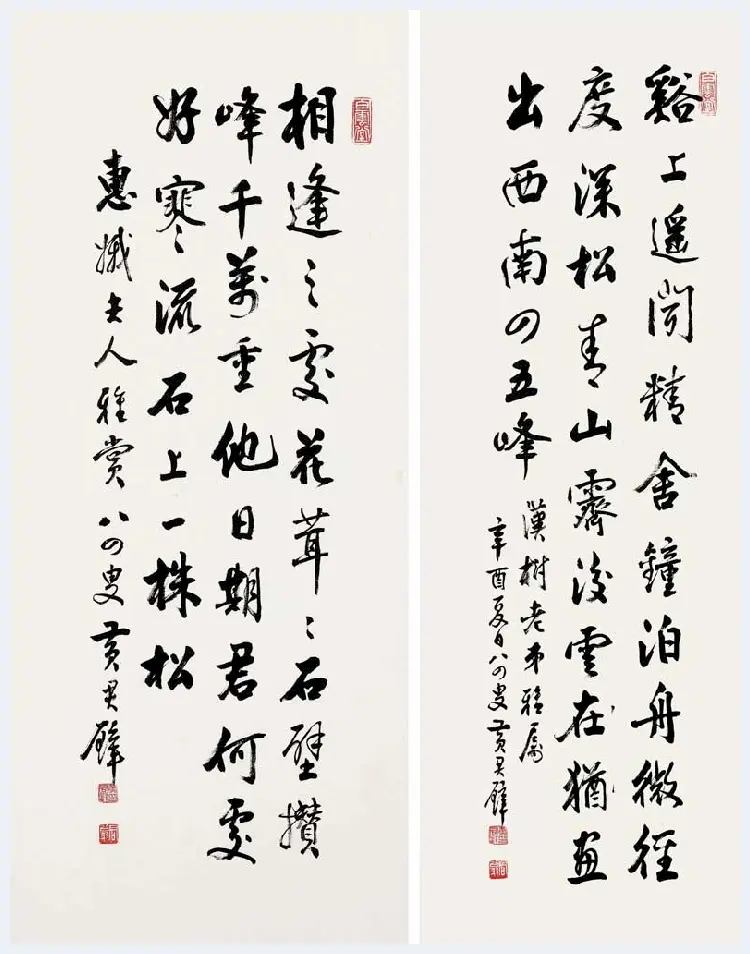 白雲堂
谿上遙聞精舍鐘泊舟微徑
度深松青山霽後雲在猶畫
出西南四五峰
漢樹老弟雅屬
辛酉夏日八四叟黃君璧
白雲堂
相逢之處花茸〻石壁攢
峰千萬重他日期君何處
好寒流石上一株松
惠夫人雅賞八四叟黃君璧